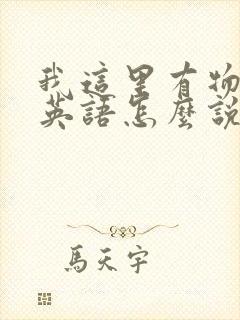 我這里有物
英語怎麼說
馬天宇